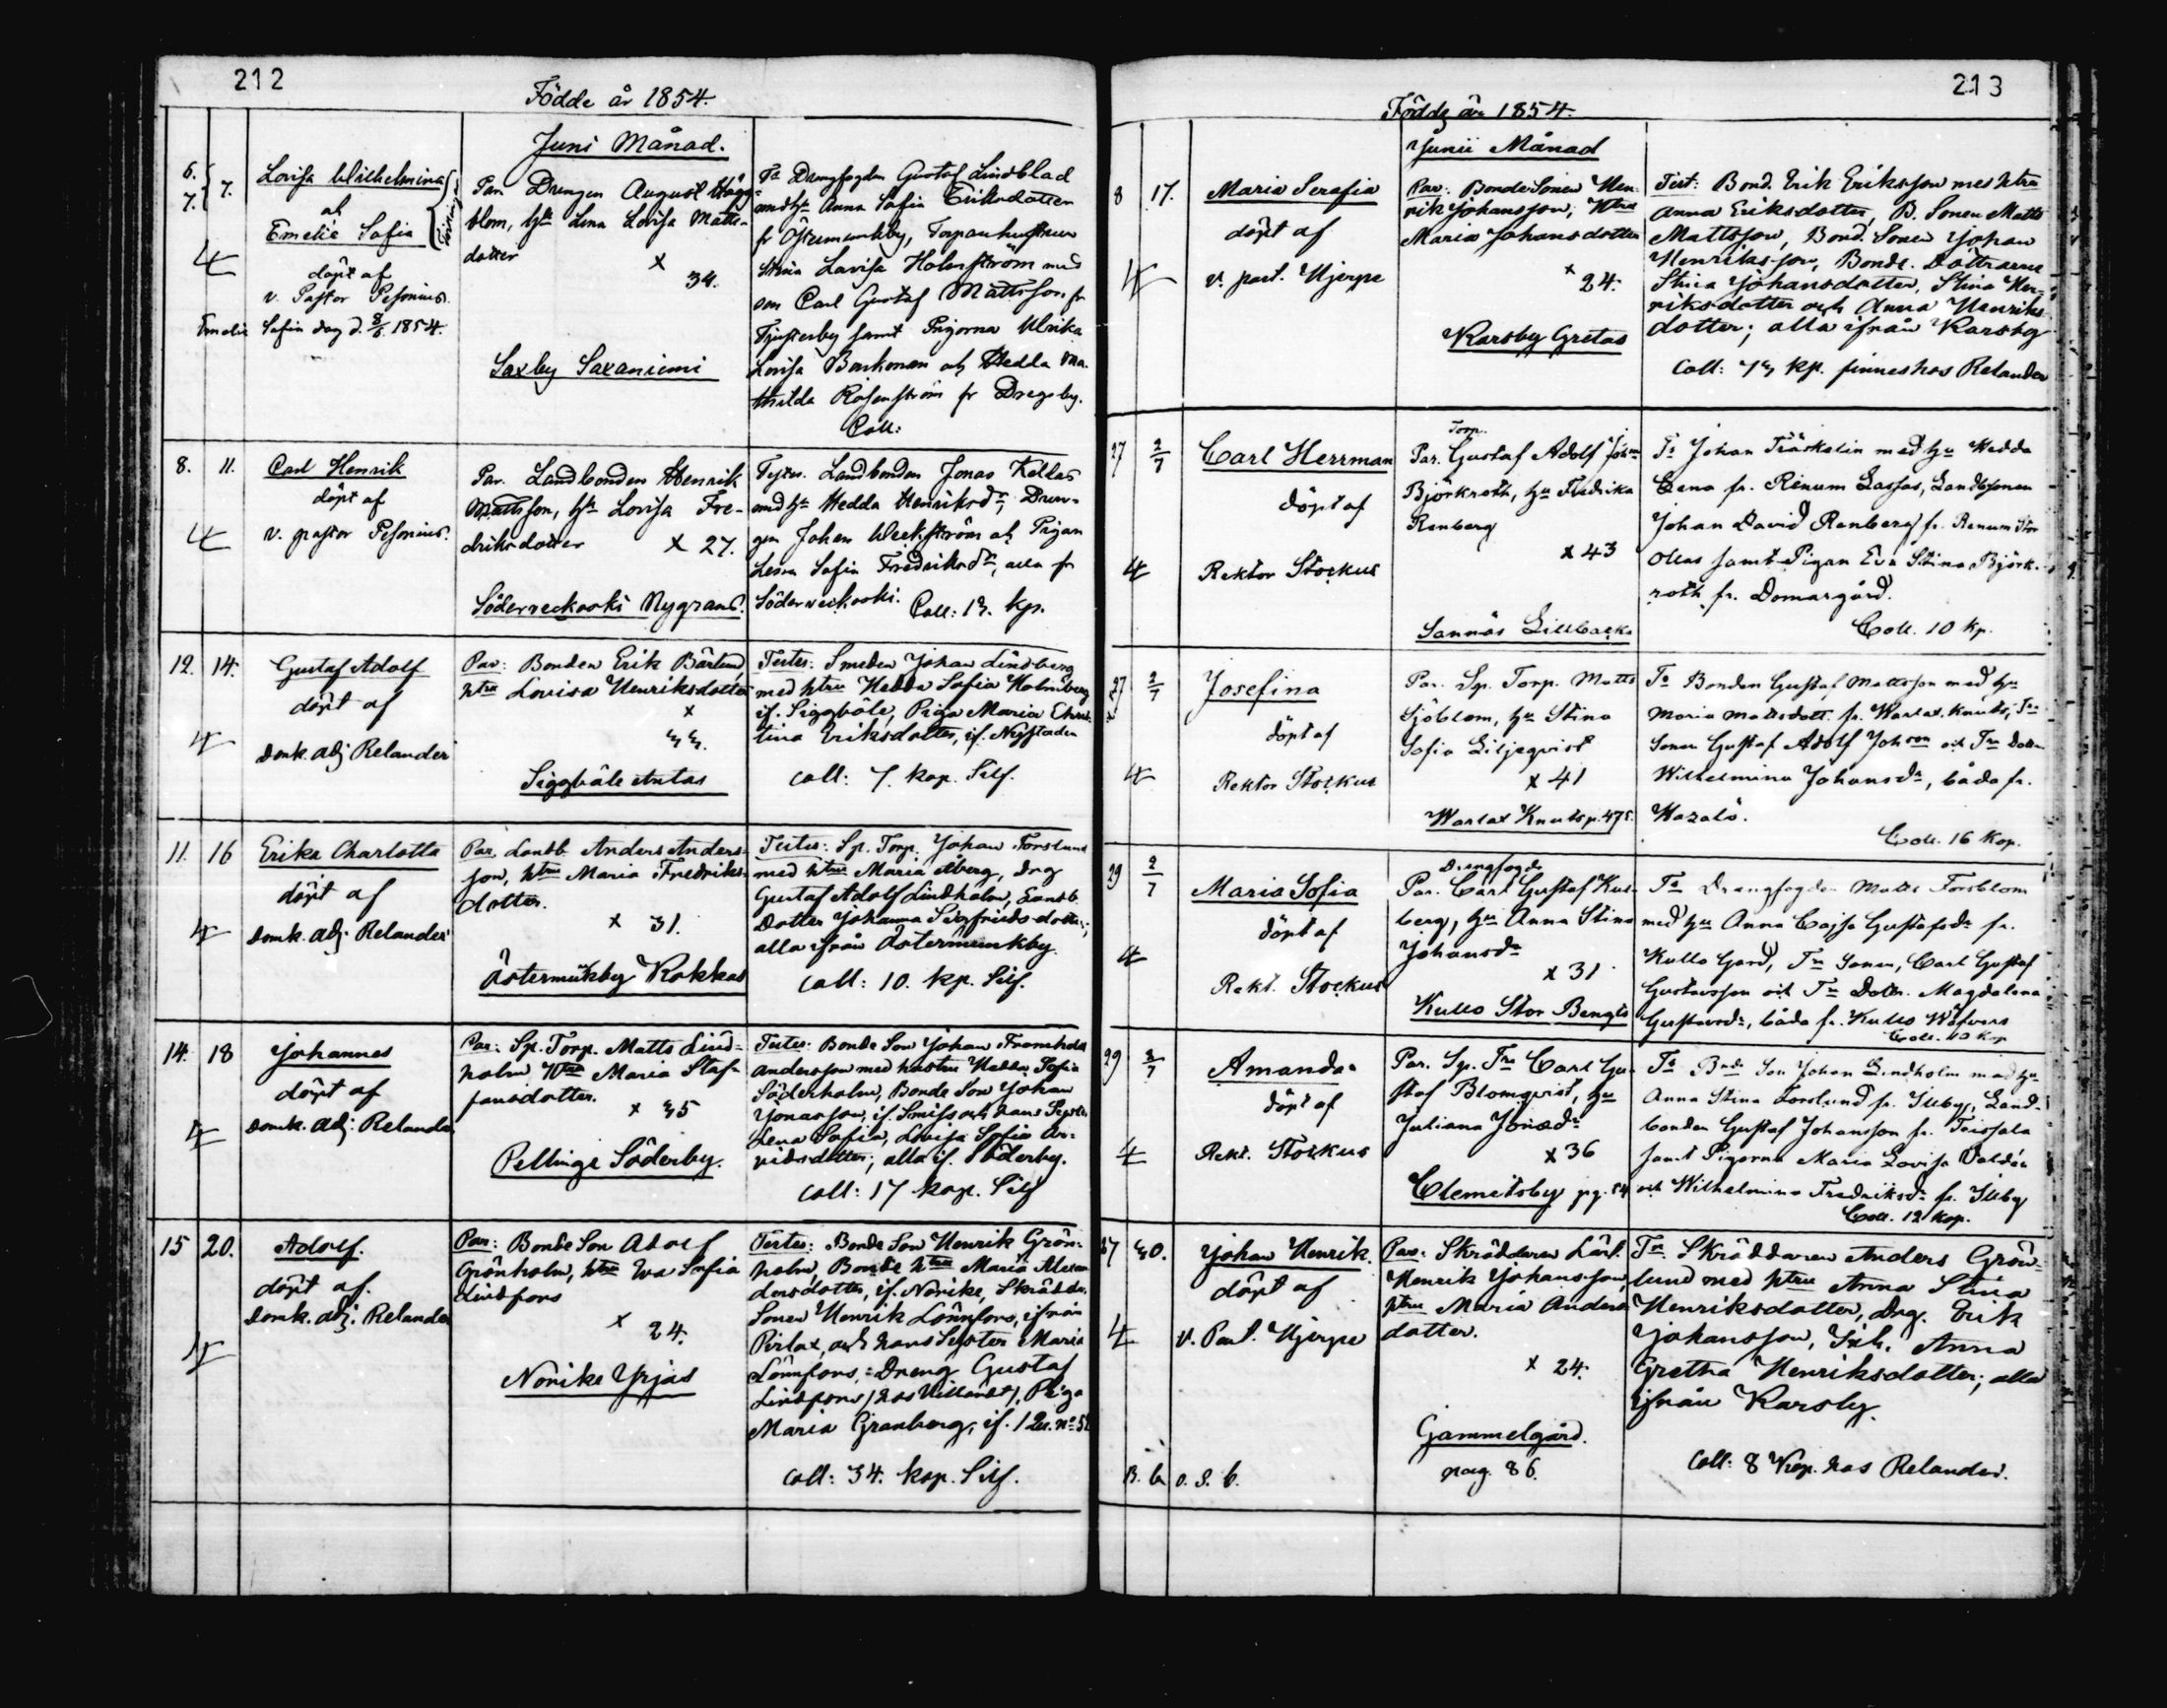 212
Födde år 1854.
Juni Månad.
6. 7. 7.
Lovisa Wilhelmina
och
Emelie Sofia
döpt af
v. Pastor Pesonius.
Emelie Sofia dog d. 8/6. 1854.
Par. Drengen August Hägg-
blom, hu Lena Lovisa Matts-
dotter
x
34.
Saxby Saxaniemi
Ts Drengfogden Gustaf Lindblad
med hu Anna Sofia Eriksdotter
fr Östermunkby, Torparhustrun
Stina Lovisa Holmström med
son Carl Gustaf Mattsson fr
Tjusterby samt Pigorna Ulrika
Lovisa och Hedda Ma-
thilda Rosenström fr Dregsby.
Coll:
8. 11.
Carl Henrik
döpt af
v. pastor Pesonius.
Par. Landbonden Henrik
Mattsson, hu Lovisa Fre-
driksdotter x 27.
Söderveckoski Nygrans.
Testes. Landbonden Jonas Kellas
med hu Hedda Henriksdr, Dren-
gen Johan Weckström och Pigan
Lena Sofia Fredriksdr, alla fr
Söderveckoski. Coll: 13. kp.
12. 14.
Gustaf Adolf
döpt af
domk. adj Relander
Par: Bonden Erik Bärlund
htru Lovisa Henriksdotter
x
33.
Siggböle Antas
Testes: Smeden Johan Lindberg
med htru Hedda Sofia Holmberg
if. Siggböle, Piga Maria Chris-
tina Eriksdotter, if. Nystaden
Coll: 7. kop. Silf.
11. 16
Erika Charlotta
döpt af
Domk. adj. Relander
Par. Landb. Anders Anders-
son, htru Maria Fredriks-
dotter.
x 31.
Östermunkby Kokkas
Testes: Sp. Torp. Johan Forslund
med htru Maria Åberg, Drg
Gustaf Adolf Lindholm, Landb.
Dotter Johanna Sigfridsdotter;
alla ifrån Östermunkby.
Coll: 10. kp. Silf.
14. 18
Johannes
döpt af
domk. adj. Relander
Par: Sp. Torp. Matts Lind-
holm Htru Maria Staf-
fansdotter.
x 35
Pellinge Söderby.
Testes: Bonde Son Johan Fromhold
Andersson med hustru Hedda Sofia
Söderholm, Bonde Son Johan
Jonasson, if. Smiss och hans Syster
Lena Sofia, Lovisa Sofia Ar-
vidsdotter; alla if. Söderby.
Coll: 17 kop. Silf
15 20.
Adolf.
döpt af.
Domk. adj. Relander
Par: Bonde Son Adolf
Grönholm, htru Eva Sofia
Lindfors
x
24.
Norike Yrjas
Testes: Bonde Son Henrik Grön-
holm, Bonde htru Maria Alexan-
dersdotter, if. Norike, Skrädd.
Sonen Henrik Lönnfors, ifrån
Pirlax, och hans Syster Maria
Lönnfors, Dreng Gustaf
Lindfors, Piga
Maria Granberg, if.
Coll: 34. kop. Silf.
213
Födde år 1854.
Junii Månad
8 17.
Maria Serafia
döpt af
v. past. Hjerpe
Par: Bonde Sonen Hen-
rik Johansson, Htru
Maria Johansdotter
x
24.
Karsby Gretas
Test: Bond. Erik Eriksson med htru
Anna Eriksdotter, B. Sonen Matts
Mattsson, Bond. Sonen Johan
Henriksson, Bonde. Döttrarne
Stina Johansdotter, Stina Hen-
riksdotter och Anna Henriks-
dotter; alla ifrån Karsby
Coll: 73 kp. finnes hos Relander
27 2/7
Carl Herrman
döpt af
Rektor Stockus
Torp.
Par. Gustaf Adolf Johan
Björkroth, hu Fredrika
Renberg
x 43
Sannäs Lillbacka
Ts Johan Träskelin med hu Hedda
Lena fr. Renum Lassas, Landbsonen
Johan David Renberg fr. Renum Stor
Ollas samt Pigan Eva Stina Björk-
roth fr. Domargård.
Coll. 10 kp.
27 2/7
Josefina
döpt af
Rektor Stockus
Par. Sp. Torp. Matts
Sjöblom, hu Stina
Sofia Liljeqvist
x 41
Warlax Knuts p. 475.
Ts Bonden Gustaf Mattsson med hu
Maria Mattsdott. fr. Warlax. Knuts, Trp
Sonen Gustaf Adolf Johson och Trp Dottn
Wilhelmina Johansdr, båda fr.
Wazalö.
Coll. 16 Kop.
29 2/7
Maria Sofia
döpt af
Rekt. Stockus
Drengfogd.
Par. Carl Gustaf Kul-
berg, hu Anna Stina
Johansdr
x 31
Kullo Stor Bengts
Ts Drengfogden Matts Forsblom
med hu Anna Cajsa Gustafsdr fr.
Kullo Gård, Trp Sonen, Carl Gustaf
Gustavsson och Trp Dottn. Magdalena
Gustavsdr, båda fr. Kullo Wäfvars
Coll. 10 kop
29 2/7
Amanda
döpt af
Rekt. Stockus
Par. Sp. Trp Carl Gu-
staf Blomqvist, hu
Juliana Jonasdr
x 36
Clemetsby pg. 54
Ts Bnd. Son Johan Lindholm med hu
Anna Stina Forslund fr. Illby, Land-
bonden Gustaf Johansson fr. Treissala
samt Pigorna Maria Lovisa Valdén
och Wilhelmina Fredriksdr fr. Illby
Coll. 12 kop.
27 30.
Johan Henrik.
döpt af
v. Past. Hjerpe
B. b. o. S. b.
Par: Skräddaren Lärl.
Henrik Johansson,
htru Maria Anders
dotter.
x 24.
Gammelgård.
pag. 86.
Tn. Skräddaren Anders Grön-
lund med htru Anna Stina
Henriksdotter, Drg. Erik
Johansson, Inh. Anna
Gretha Henriksdotter; alla
ifrån Karsby.
Coll: 8 Kop. hos Relander.